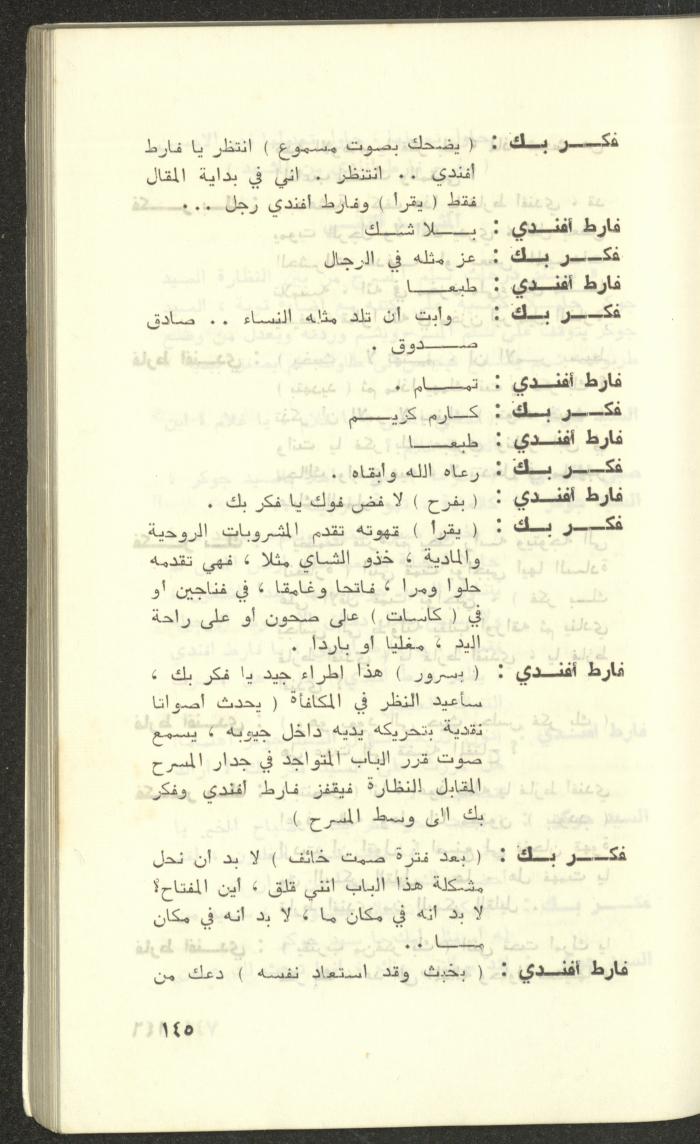 فكــــر بــك : ( يضحك بصوت مسموع ) انتظر يا فارط
أفندي .. انتنظر . اني في بداية المقال
فقط ( يقرأ ) وفارط أفندي رجل ...
فارط أفنــدي : بــــلا شــــك
فكــــر بــك : عز مثله في الرجال
فارط أفنــدي : طبعـــــا
فكــــر بــك : وأبت أن تلد مثله النساء .. صادق
صــــدوق .
فارط أفنــدي : تمــــام .
فكــــر بــك : كــارم كريـــم
فارط أفنــدي : طبعـــــا
فكــــر بــك : رعاه الله وأبقاه .
فارط أفنــدي : ( بفرح ) لا فض فوك يا فكر بك .
فكــــر بــك : ( يقرأ ) قهوته تقدم المشروبات الروحية
والمادية ، خذو الشاي مثلا ، فهي تقدمه
حلوا ومرا ، فاتحا وغامقا ، في فناجين او
في ( كاسات ) على صحون أو على راحة
اليد ، مغليا أو باردا .
فارط أفنــدي : ( بسرور ) هذا اطراء جيد يا فكر بك ،
سأعيد النظر في المكافأة ( يحدث أصواتا
نقدية بتحريكه يديه داخل جيوبه ، يسمع
صوت قرر الباب المتواجد في جدار المسرح
المقابل النظارة فيقفز فارط أفندي وفكر
بك الى وسط المسرح )
فكــــر بــك : ( بعد فترة صمت خائف ) لا بد أن نحل
مشكلة هذا الباب انني قلق ، أين المفتاح؟
لا بد أنه في مكان ما ، لا بد انه في مكان
مـــــا ..
فارط أفنــدي : ( بخبث وقد استعاد نفسه ) دعك من
١٤٥